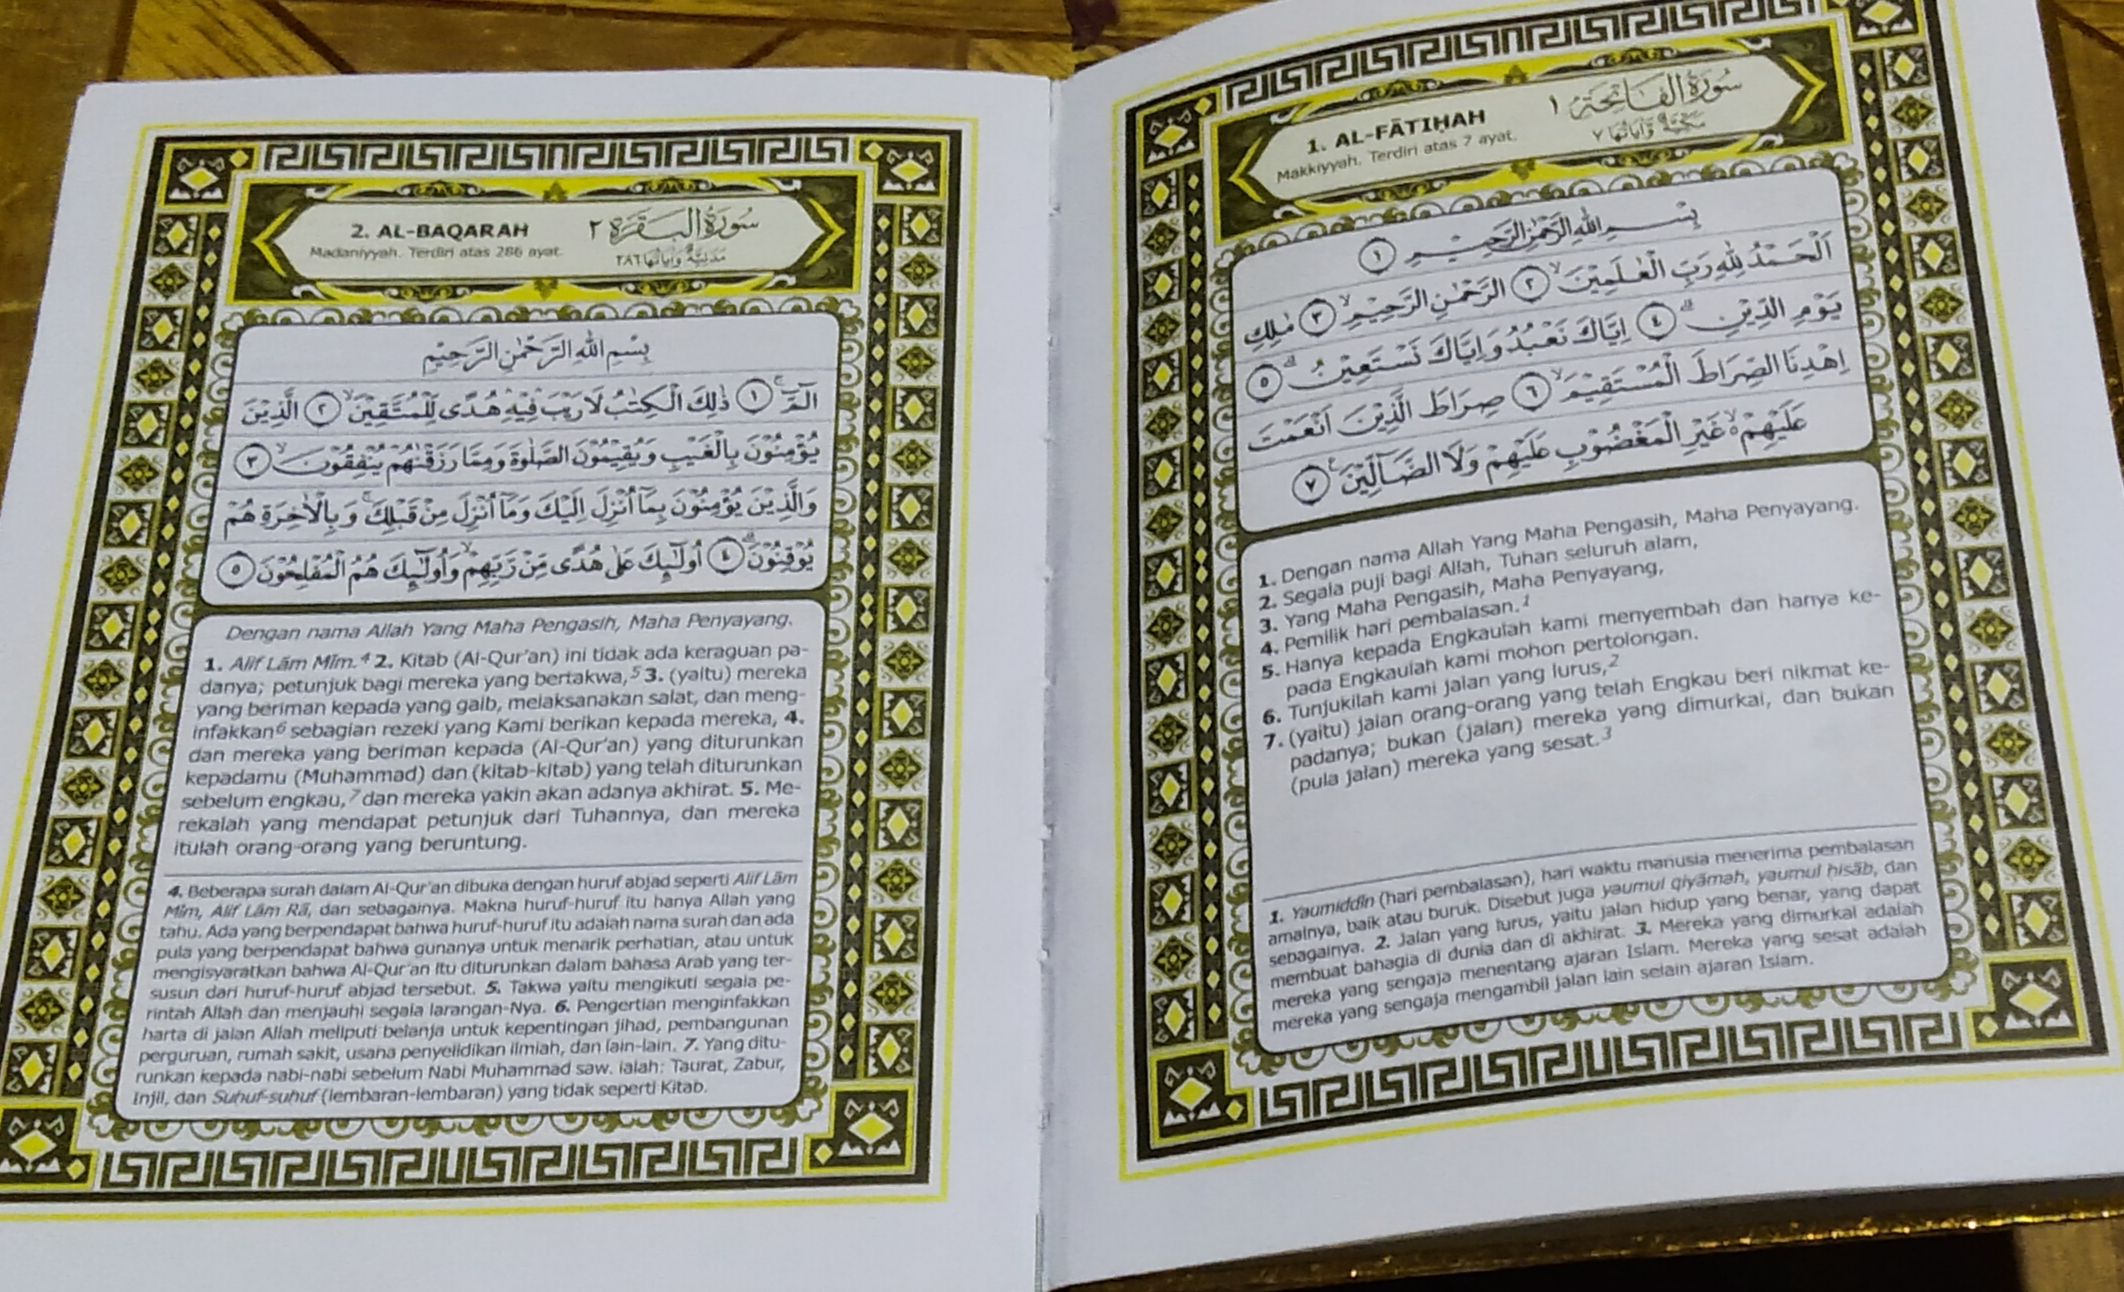 1. AL-FĀTIḤAH
Makkiyyah. Terdiri atas 7 ayat.
سُورَةُ الفَاتِحَةِ ١
مَكِّيَّةٌ وَآيَاتُهَا ٧
بِسْمِ اللّٰهِ الرَّحْمٰنِ الرَّحِيْمِ ١
اَلْحَمْدُ لِلّٰهِ رَبِّ الْعٰلَمِيْنَۙ ٢ الرَّحْمٰنِ الرَّحِيْمِۙ ٣ مٰلِكِ
يَوْمِ الدِّيْنِۗ ٤ اِيَّاكَ نَعْبُدُ وَاِيَّاكَ نَسْتَعِيْنُۗ ٥
اِهْدِنَا الصِّرَاطَ الْمُسْتَقِيْمَۙ ٦ صِرَاطَ الَّذِيْنَ اَنْعَمْتَ
عَلَيْهِمْ ەۙ غَيْرِ الْمَغْضُوْبِ عَلَيْهِمْ وَلَا الضَّاۤلِّيْنَࣖ ٧
1. Dengan nama Allah Yang Maha Pengasih, Maha Penyayang.
2. Segala puji bagi Allah, Tuhan seluruh alam,
3. Yang Maha Pengasih, Maha Penyayang,
4. Pemilik hari pembalasan.1
5. Hanya kepada Engkaulah kami menyembah dan hanya ke-
pada Engkaulah kami mohon pertolongan.
6. Tunjukilah kami jalan yang lurus,2
7. (yaitu) jalan orang-orang yang telah Engkau beri nikmat ke-
padanya; bukan (jalan) mereka yang dimurkai, dan bukan
(pula jalan) mereka yang sesat.3
1. Yaumiddīn (hari pembalasan), hari waktu manusia menerima pembalasan
amalnya, baik atau buruk. Disebut juga yaumul qiyāmah, yaumul ḥisāb, dan
sebagainya. 2. Jalan yang lurus, yaitu jalan hidup yang benar, yang dapat
membuat bahagia di dunia dan di akhirat. 3. Mereka yang dimurkai adalah
mereka yang sengaja menentang ajaran Islam. Mereka yang sesat adalah
mereka yang sengaja mengambil jalan lain selain ajaran Islam.
2. AL-BAQARAH
Madaniyyah. Terdiri atas 286 ayat.
سُورَةُ البَقَرَةِ ٢
مَدَنِيَّةٌ وَآيَاتُهَا ٢٨٦
بِسْمِ اللّٰهِ الرَّحْمٰنِ الرَّحِيْمِ
الۤمّۤۚ ١ ذٰلِكَ الْكِتٰبُ لَا رَيْبَۛ فِيْهِۛ هُدًى لِّلْمُتَّقِيْنَۙ ٢ الَّذِيْنَ
يُؤْمِنُوْنَ بِالْغَيْبِ وَيُقِيْمُوْنَ الصَّلٰوةَ وَمِمَّا رَزَقْنٰهُمْ يُنْفِقُوْنَۙ ٣
وَالَّذِيْنَ يُؤْمِنُوْنَ بِمَآ اُنْزِلَ اِلَيْكَ وَمَآ اُنْزِلَ مِنْ قَبْلِكَۚ وَبِالْاٰخِرَةِ هُمْ
يُوْقِنُوْنَۗ ٤ اُولٰۤىِٕكَ عَلٰى هُدًى مِّنْ رَّبِّهِمْۙ وَاُولٰۤىِٕكَ هُمُ الْمُفْلِحُوْنَ ٥
Dengan nama Allah Yang Maha Pengasih, Maha Penyayang.
1. Alif Lām Mīm.4 2. Kitab (Al-Qur'an) ini tidak ada keraguan pa-
danya; petunjuk bagi mereka yang bertakwa,5 3. (yaitu) mereka
yang beriman kepada yang gaib, melaksanakan salat, dan meng-
infakkan6 sebagian rezeki yang Kami berikan kepada mereka, 4.
dan mereka yang beriman kepada (Al-Qur'an) yang diturunkan
kepadamu (Muhammad) dan (kitab-kitab) yang telah diturunkan
sebelum engkau,7 dan mereka yakin akan adanya akhirat. 5. Me-
rekalah yang mendapat petunjuk dari Tuhannya, dan mereka
itulah orang-orang yang beruntung.
4. Beberapa surah dalam Al-Qur'an dibuka dengan huruf abjad seperti Alif Lām
Mīm, Alif Lām Rā, dan sebagainya. Makna huruf-huruf itu hanya Allah yang
tahu. Ada yang berpendapat bahwa huruf-huruf itu adalah nama surah dan ada
pula yang berpendapat bahwa gunanya untuk menarik perhatian, atau untuk
mengisyaratkan bahwa Al-Qur'an itu diturunkan dalam bahasa Arab yang ter-
susun dari huruf-huruf abjad tersebut. 5. Takwa yaitu mengikuti segala pe-
rintah Allah dan menjauhi segala larangan-Nya. 6. Pengertian menginfakkan
harta di jalan Allah meliputi belanja untuk kepentingan jihad, pembangunan
perguruan, rumah sakit, usaha penyelidikan ilmiah, dan lain-lain. 7. Yang ditu-
runkan kepada nabi-nabi sebelum Nabi Muhammad saw. ialah: Taurat, Zabur,
Injil, dan Suḥuf-suḥuf (lembaran-lembaran) yang tidak seperti Kitab.